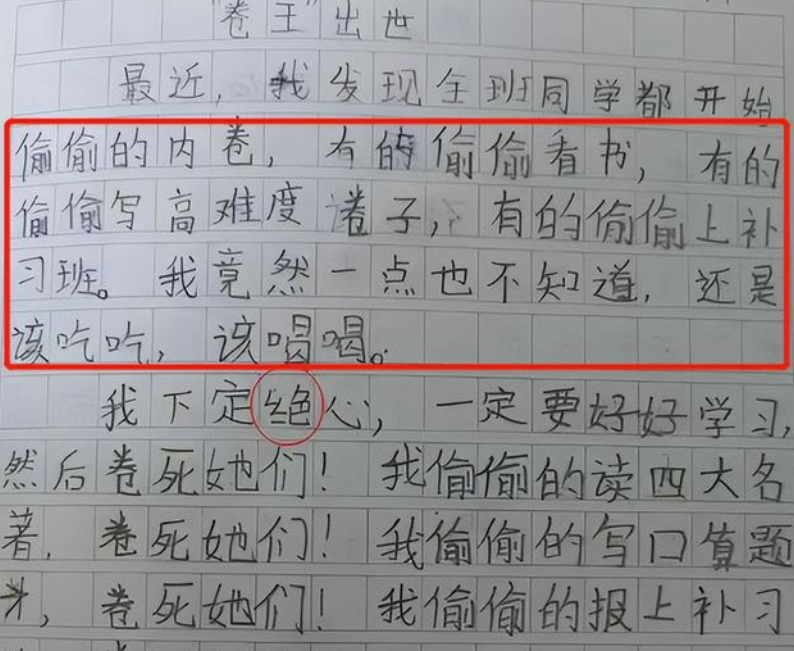 "卷王"出世
最近，我发现全班同学都开始
偷偷的内卷，有的偷偷看书，有的
偷偷写高难度卷子，有的偷偷上补
习班。我竟然一点也不知道，还是
该吃吃，该喝喝。
我下定绝心，一定要好好学习，
然后卷死她们！我偷偷的读四大名
著，卷死她们！我偷偷的写口算题
卡，卷死她们！我偷偷的报上补习